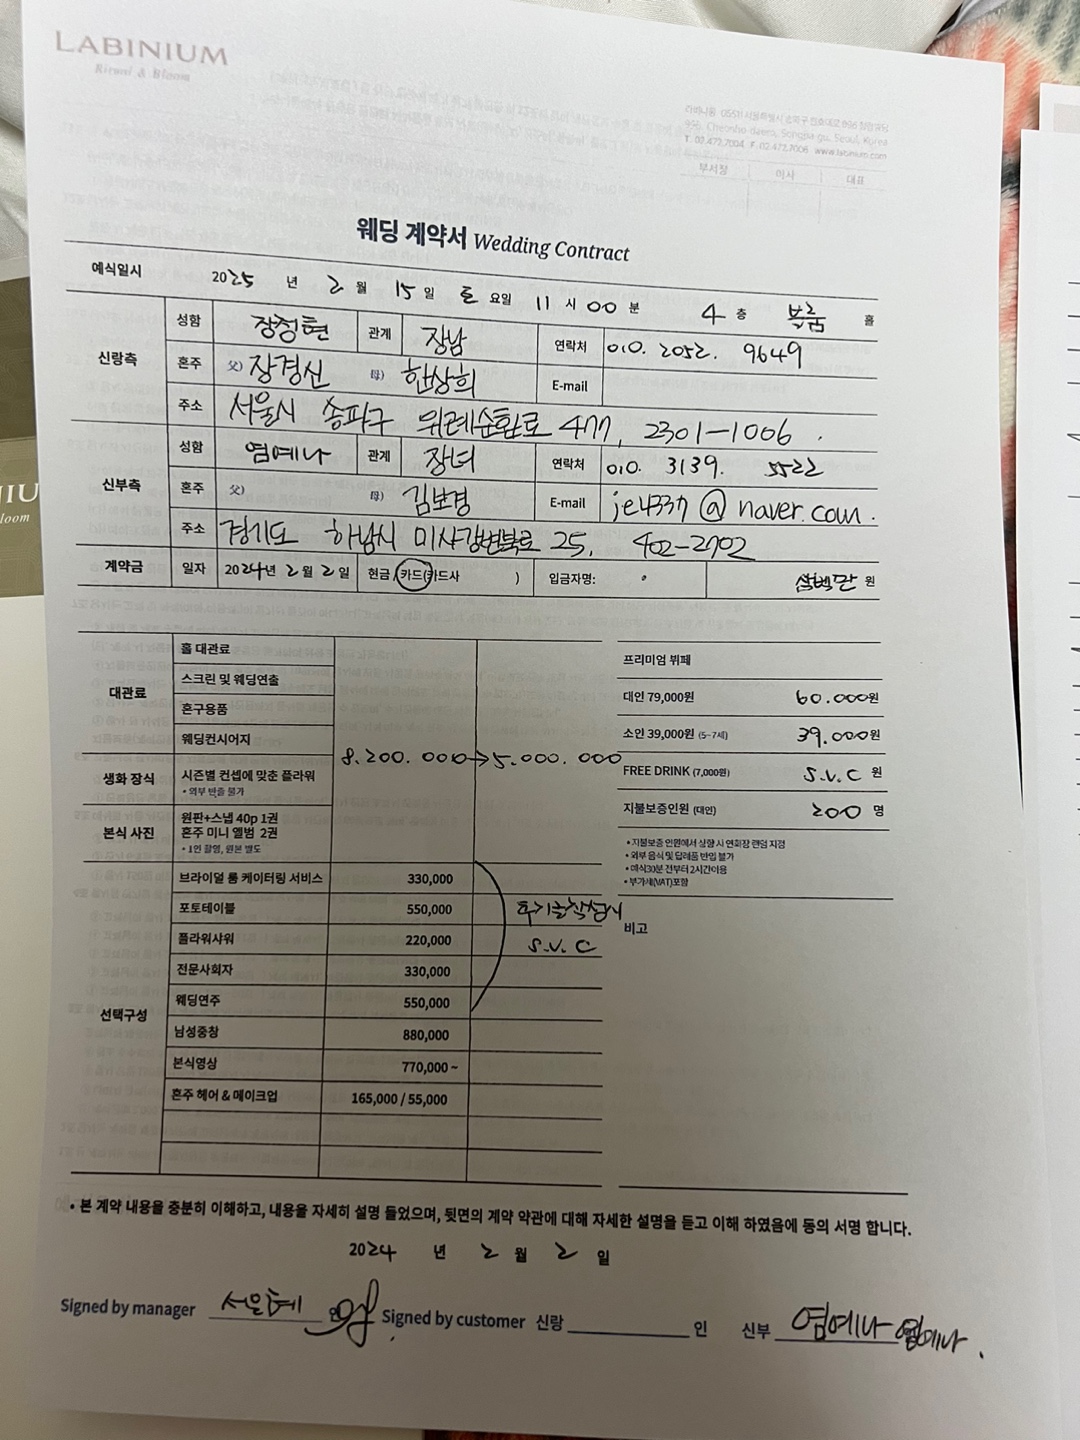 LABINIUM
Rivml & Bloom
라비니움 05511 서울특별시 송파구 천호대로 996 청암빌딩
996, Cheonho daero, Songpa gu, Seoul, Korea
T. 02.472.7004 F. 02.472.7006 www.labinium.com
부서장 이사 대표
웨딩 계약서 Wedding Contract
예식일시 2025 년 2 월 15 일 토 요일 11 시 00 분 4 층 블룸 홀
신랑측 성함 장정현 관계 장남 연락처 010. 2052. 9649
혼주 父) 장경신 母) 한상희 E-mail
주소 서울시 송파구 위례순환로 477, 2301-1006.
신부측 성함 염예나 관계 장녀 연락처 010. 3139. 5522
혼주 父) 母) 김보경 E-mail je4337@naver.com.
주소 경기도 하남시 미사강변북로 25, 402-2702
계약금 일자 2024년 2월 2일 현금, 카드(카드사 ) 입금자명: 삼백만 원
대관료 홀 대관료
스크린 및 웨딩연출
혼구용품
웨딩컨시어지
8.200.000→5.000.000
생화 장식 시즌별 컨셉에 맞춘 플라워
• 외부 반출 불가
본식 사진 원판+스냅 40p 1권
혼주 미니 앨범 2권
• 1인 촬영, 원본 별도
선택구성 브라이덜 룸 케이터링 서비스 330,000
포토테이블 550,000 후기글작성시
플라워샤워 220,000 S.V.C
전문사회자 330,000
웨딩연주 550,000
남성중창 880,000
본식영상 770,000 ~
혼주 헤어 & 메이크업 165,000 / 55,000
프리미엄 뷔페
대인 79,000원 60.000원
소인 39,000원 (5-7세) 39.000원
FREE DRINK (7,000원) S.V.C 원
지불보증인원 (대인) 200 명
• 지불보증 인원에서 상향 시 연회장 랜덤 지정
• 외부 음식 및 답례품 반입 불가
• 예식30분 전부터 2시간이용
• 부가세(VAT)포함
비고
• 본 계약 내용을 충분히 이해하고, 내용을 자세히 설명 들었으며, 뒷면의 계약 약관에 대해 자세한 설명을 듣고 이해 하였음에 동의 서명 합니다.
2024 년 2 월 2 일
Signed by manager 서은혜 인 Signed by customer 신랑 인 신부 염예나 염예나.
NIU
loom